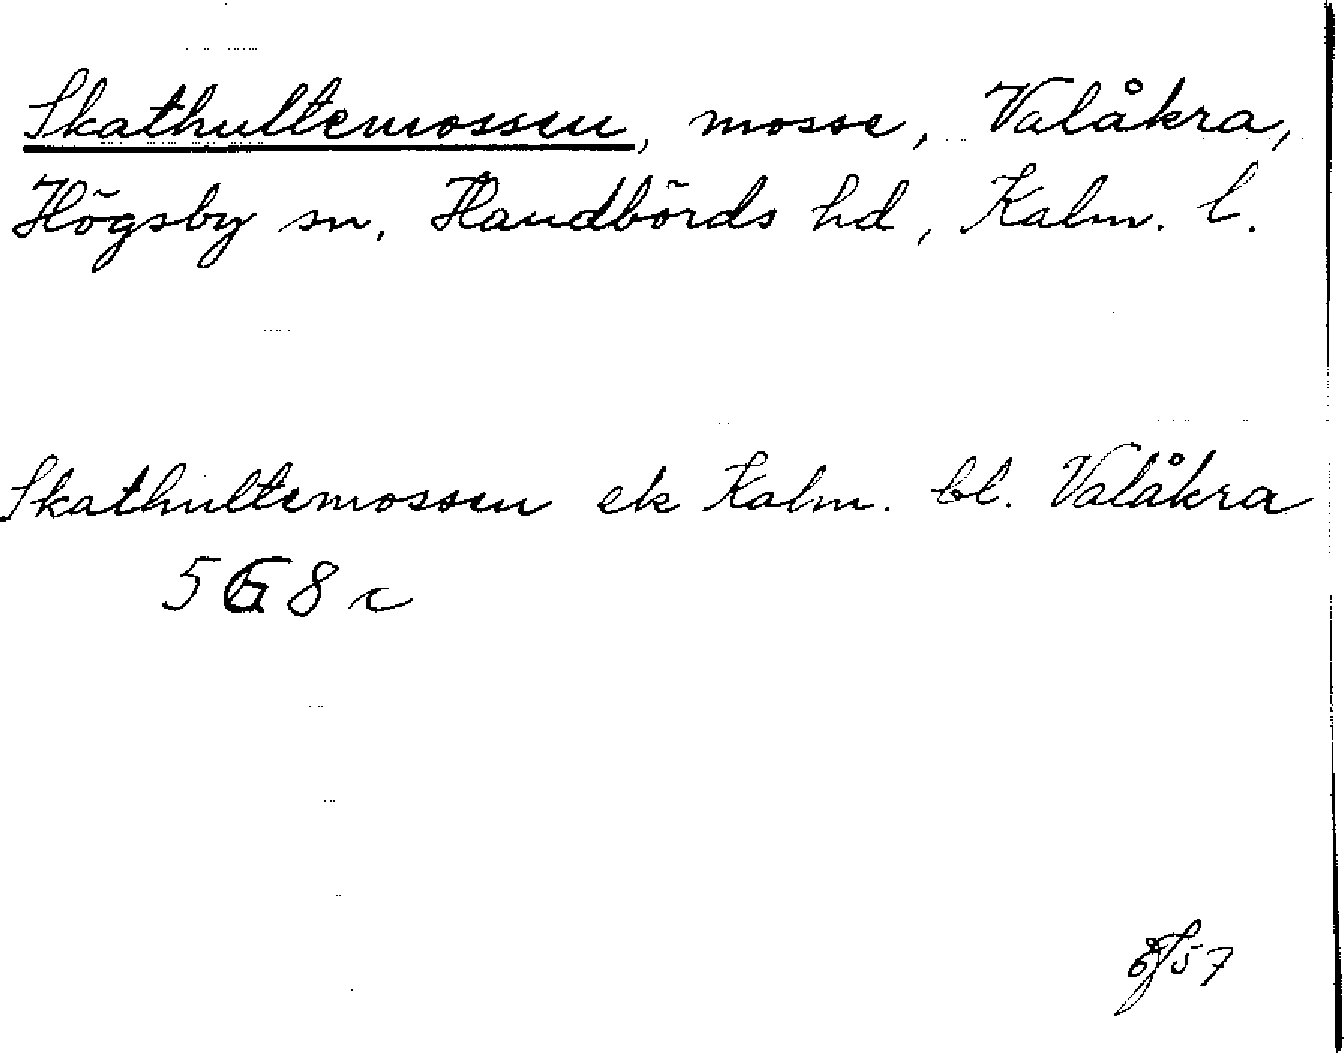 Skathultemossen, mosse, Valåkra,
Högsby sn, Handbörds hd, Kalm. l.
Skathultemossen ek Kalm. bl. Valåkra
5G8c
57